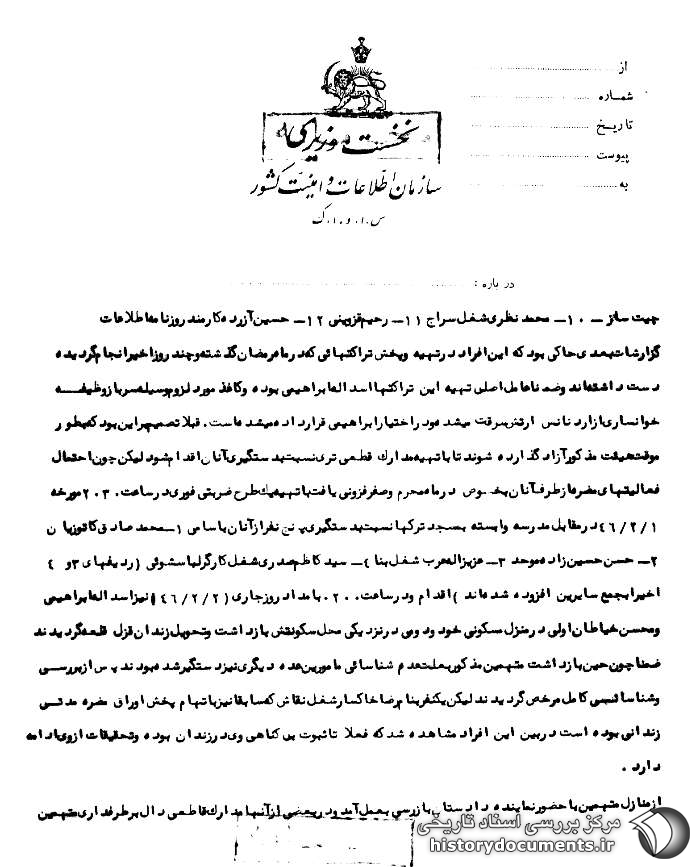 از
شماره
تاریخ
پیوست
به
نخست وزیری
سازمان اطلاعات و امنیت کشور
س.ا.و.ا.ک
درباره :
چیت ساز ـ ۱۰ـ محمد نظری شغل سراج ۱۱ـ رحیم قزوینی ۱۲ـ حسین آزرده کارمند روزنامه اطلاعات
گزارشات بعدی حاکی بود که این افراد در تهیه و پخش تراکتهائی که در ماه رمضان گذشته و چند روز اخیر انجام گردیده
دست داشته‌اند وضمنا عامل اصلی تهیه این تراکتها اسداله ابراهیمی بوده و کاغذ مورد لزوم وسیله سرباز وظیفه
خوانساری از اردنانس ارتش سرقت میشده و در اختیار ابراهیمی قرار داده میشده است. قبلا تصمیم براین بود که بطور
موقت هیئت مذکور آزاد گذارده شوند تا با تهیه مدارک قطعی تری نسبت بدستگیری آنان اقدام شود لیکن چون احتمال
فعالیتهای مضره از طرف آنان بخصوص در ماه محرم و صفر فزونی یافت با تهیه یک طرح ضربتی فوری در ساعت ۲۰۳۰ مورخه
۴۶/۲/۱ در مقابل مدرسه وابسته بمسجد ترکها نسبت بدستگیری پنج نفر از آنان باسامی ۱ـ محمد صادق کاتوزیان
۲ـ حسن حسین زاده موحد ۳ـ عزیزاله عرب شغل بنا ۴ـ سید کاظم صدری شغل کارگر لباسشوئی (ردیفهای ۳ و ۴
اخیرا بجمع سایرین افزوده شده‌اند) اقدام و در ساعت ۰۲۰۰ بامداد روز جاری (۴۶/۲/۲) نیز اسداله ابراهیمی
و محسن خیاطان اولی در منزل مسکونی خود و دومی در نزدیکی محل سکونتش بازداشت و تحویل زندان قزل قلعه گردیدند
ضمنا چون حین بازداشت متهمین مذکور بعلت عدم شناسائی مامورین عده دیگری نیز دستگیر شده بودند پس از بررسی
و شناسائی کامل مرخص گردیدند لیکن یکنفر بنام رضا خاکسار شغل نقاش که سابقا نیز باتهام پخش اوراق مضره مدتی
زندانی بوده است در بین این افراد مشاهده شد که فعلا تا ثبوت بی گناهی وی در زندان بوده و تحقیقات از وی ادامه
دارد .
از منازل متهمین با حضور نماینده دادستان بازرسی بعمل آمد و در بعضی از آنها مدارک قاطعی دال بر طرفداری متهمین
مرکز بررسی اسناد تاریخی
historydocuments.ir